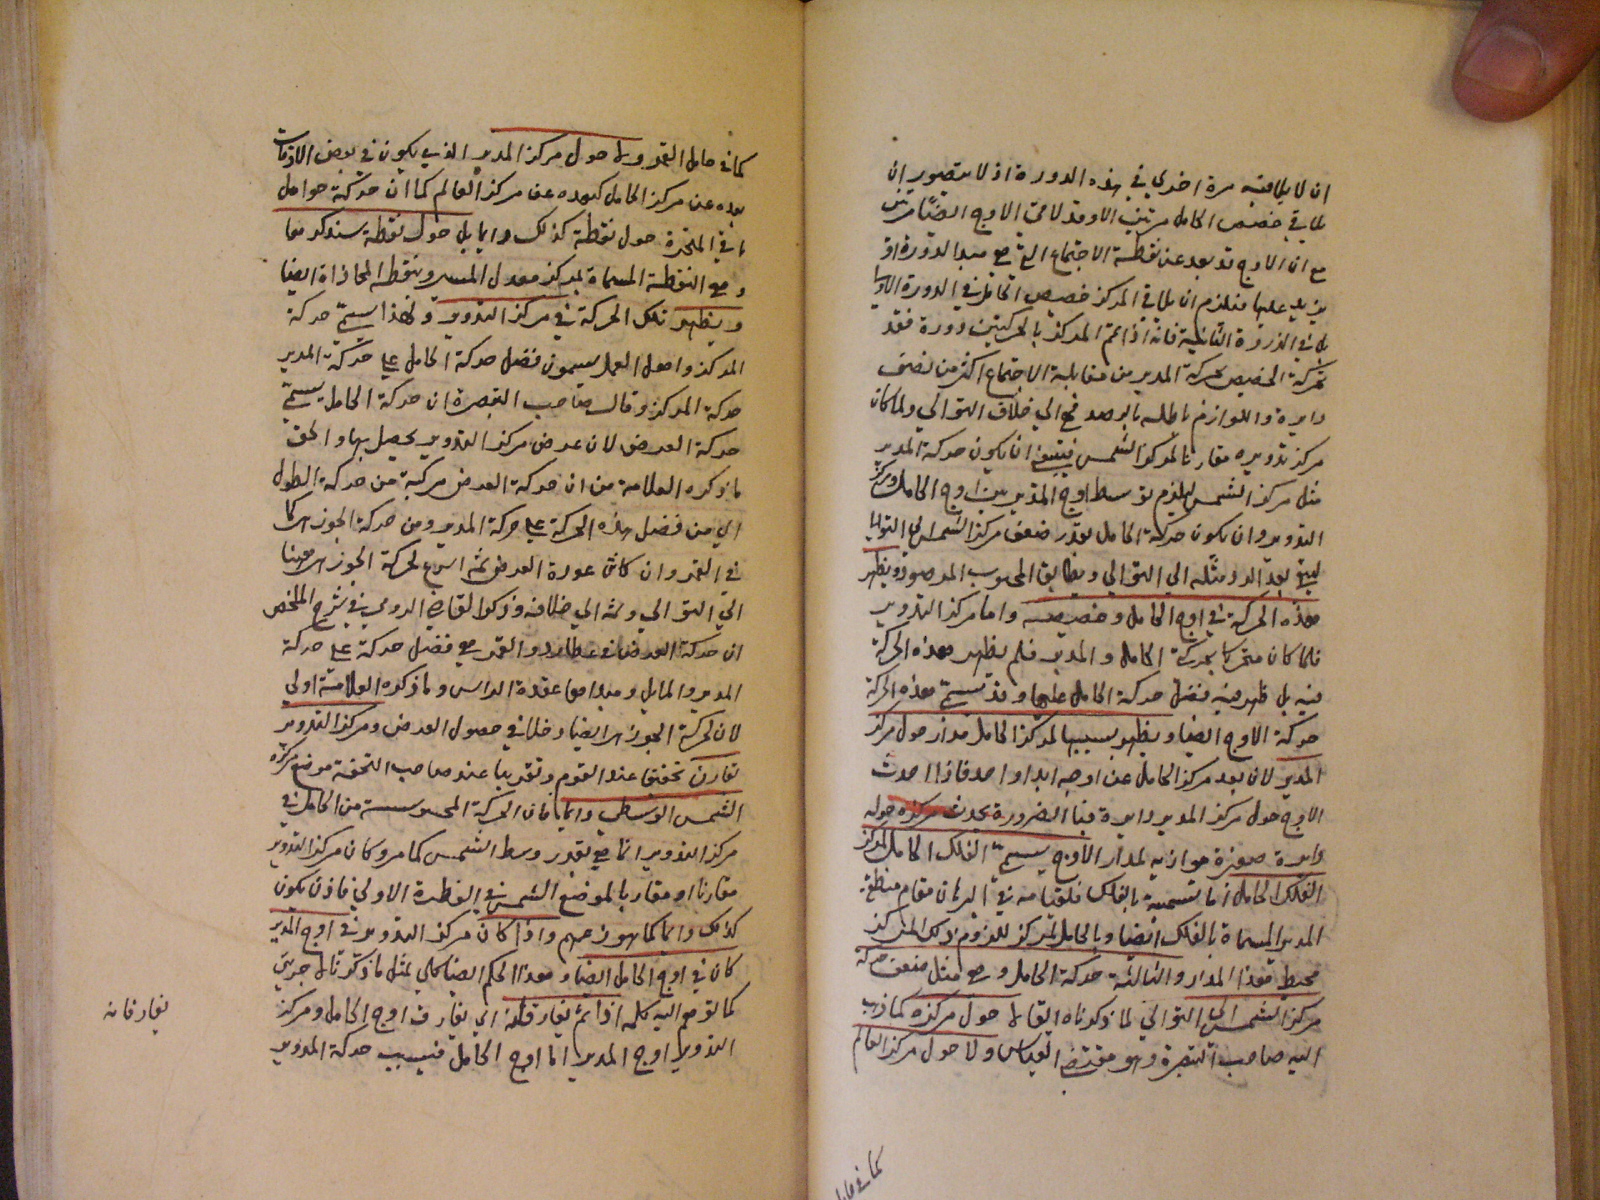 ان لا يلاقيه مرة اخرى في هذه الدورة اذ لا يتصور ان
يلاقي حضيض الحامل مرتين الا وقد لاقى الاوج ايضا مرتين
مع ان الاوج قد بعد عن نقطة الاجتماع التي هي مبدا الدورة او
يزيد عليها فيلزم ان يلاقي المركز حضيض الحامل في الدورة الاولى
بل في الذروة الثانية فانه اذا تم المركز بالحركتين دورة فقد
تحركت الحضيض بحركة المدير من مقابلة الاجتماع اكثر من نصف
دايرة واللوازم باطلة بالرصد فهي الى خلاف التوالي ولما كان
مركز تدويره مقارنا لمركز الشمس فينبغي ان يكون حركة المدير
مثل مركز الشمس ليلزم توسط اوج المدير بين اوج الحامل ومركز
التدوير وان يكون حركة الحامل بقدر ضعف مركز الشمس الى التوالي
ليبقى بعد الرد مثله الى التوالي ويطابق المحسوب المرصود ويظهر
هذه الحركة في اوج الحامل وحضيضه واما مركز التدوير
فلما كان متحركا بحركة الحامل والمدير فلم يظهر هذه الحركة
فيه بل ظهر فيه فضل حركة الحامل عليها وقد يسمى هذه الحركة
حركة الاوج ايضا ويظهر بسببها لمركز الحامل مدار حول مركز
المدير لان بعد مركز الحامل عن اوجه ابدا واحد فاذا احدث
الاوج حول مركز المدير دايرة فبا الضرورة يحدث مركزه حوله
دايرة صغيرة موازية لمدار الاوج يسمى الفلك الحامل لمركز
الفلك الحامل اما تسمية بالفلك فلقيامه في البرهان مقام منطقة
المدير المسماة بالفلك ايضا وبالحامل لمركز للزوم ذلك المركز
محيط هذا المدار والثالثة حركة الحامل وهي مثل ضعف حركة
مركز الشمس الى التوالي لما ذكرناه القائل حول مركزه كما ذهب
اليه صاحب التبصرة وهو مقتضى القياس ولا حول مركز العالم
كما في حامل
كما في حامل القمر ولا حول مركز المدير الذي يكون في بعض الاوقات
بعده عن مركز الحامل كبعده عن مركز العالم كما ان حركة حوامل
باقي المتحيرة حول نقطة كذلك دايما بل حول نقطة سنذكرها
وهي النقطة المسماة بمركز معدل المسير وبنقطة المحاذاة ايضا
ويظهر تلك الحركة في مركز التدوير ولهذا يسمى حركة
المركز واهل العمل يسمون فضل حركة الحامل على حركة المدير
حركة المركز وقال صاحب التبصرة ان حركة الحامل يسمى
حركة العرض لان عرض مركز التدوير يحصل بها والحق
ما ذكره العلامة من ان حركة العرض مركبة من حركة الطول
اي من فضل هذه الحركة على حركة المدير ومن حركة الجوزهر كما
في القمر وان كانت عودة العرض ثمه اسرع لحركة الجوزهر هنا
الى التوالي وثمه الى خلافه وذكر القاضي الرومي في شرح الملخص
ان حركة العرض في عطارد والقمر هي فضل حركة على حركة
المدير والمايل ومبداها عقدة الراس وما ذكره العلامة اولى
لان لحركة الجوزهر ايضا دخلا في حصول العرض ومركز التدوير
تقارن تحقيقا عند القوم وتقريبا عند صاحب التحفة موضع مركز
الشمس الوسطي دايما فان الحركة المحسوسة من الحامل في
مركز التدوير انما هي بقدر وسط الشمس كما مر وكان مركز التدوير
مقارنا او مقاربا لموضع الشمس في الفطرة الاولى فاذن يكون
كذلك دايما كما هو زعمهم واذا كان مركز التدوير في اوج المدير
كان في اوج الحامل ايضا وهذا الحكم ايضا كلي لمثل ما ذكرنا لا جزئي
كما توهم اليه كلمة اذا ثم يفارقانه اي يفارق اوج الحامل ومركز
التدوير اوج المدير اما اوج الحامل فبسبب حركة المدير
يفارقانه